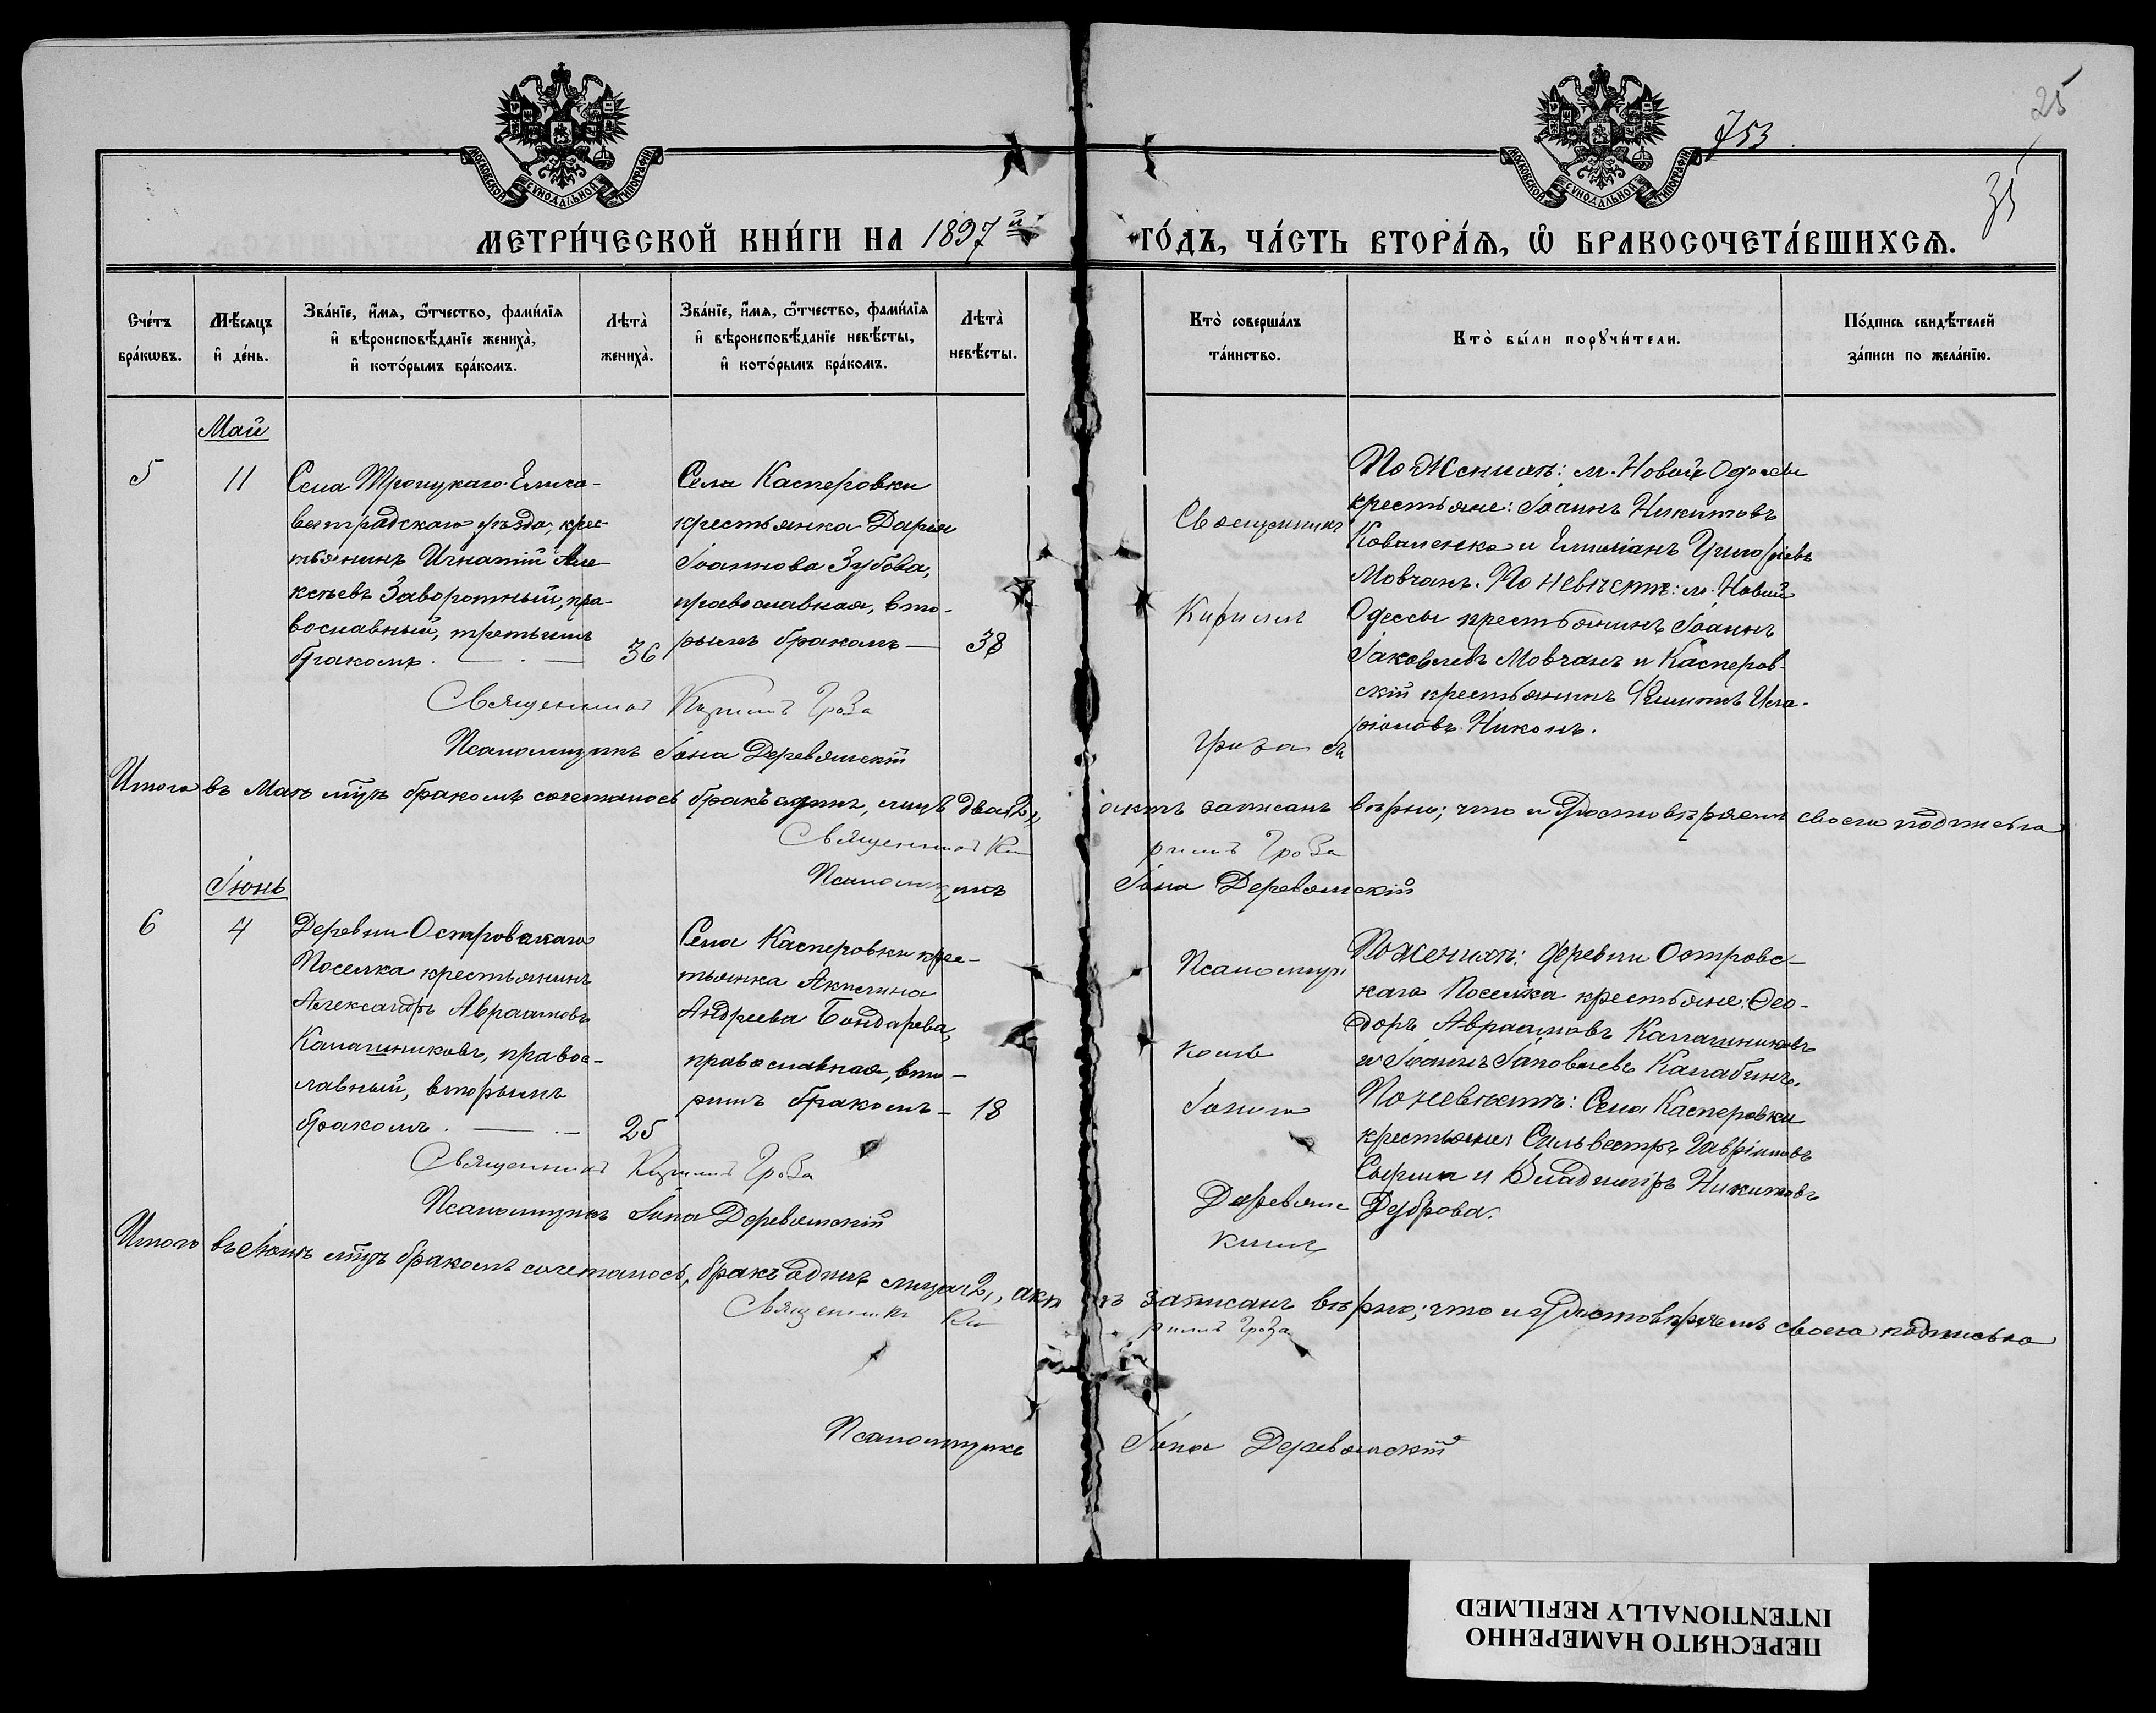 МОСКОВСКОЙ СѴНОДАЛЬНОЙ ТИПОГРАФІИ
МОСКОВСКОЙ СѴНОДАЛЬНОЙ ТИПОГРАФІИ
753
25
35
МЕТРИ́ЧЕСКОЙ КНИ́ГИ НА 1897й ГО́ДЪ, ЧА́СТЬ ВТОРА́Я, Ѡ БРАКОСОЧЕТА́ВШИХСЯ.
Сче́тъ
бра́кѡвъ.
Мѣ́сяцъ
и де́нь.
Зва́нїе, и́мя, ѻ́тчество, фами́лїя
и вѣроисповѣ́данїе жениха̀,
и кото́рымъ бра́комъ.
Лѣта̀
жениха̀.
Зва́нїе, и́мя, ѻ́тчество, фами́лїя
и вѣроисповѣ́данїе невѣ́сты,
и кото́рымъ бра́комъ.
Лѣта̀
невѣ́сты.
Кто̀ соверша́лъ
та́инство.
Кто̀ бы́ли порꙋчи́тели.
По́дпись свидѣ́телей
за́писи по жела́нїю.
Май
5
11
Села Троицкаго Елиса-
ветградскаго уѣзда, крес-
тьянинъ Игнатій Але-
ксѣевъ Заворотный, пра-
вославный, третьимъ
бракомъ. — . —
36
Села Касперовки
крестьянка Дарія
Іоаннова Зубова,
православная, вто-
рымъ бракомъ —
38
Священникъ
Кириллъ
Гроза съ
По Женихѣ: м. Новой Одессы
крестьяне: Іоаннъ Никитовъ
Коваленко и Емиліанъ Григоріевъ
Мовчанъ. По невѣстѣ: м. Новой
Одессы крестьянинъ Іоаннъ
Іаковлевъ Мовчанъ и Касперов-
скій крестьянинъ Филиппъ Ила-
ріоновъ Никонъ.
Священникъ Кириллъ Гроза
Псаломщикъ Іона Деревянскій
Итого въ Маѣ мцѣ бракомъ сочеталось бракъ одинъ, лицъ два (2), актъ записанъ вѣрно; что и удостовѣряемъ своею подписью
Священникъ Кириллъ Гроза
Псаломщикъ Іона Деревянскій
Іюнь
6
4
Деревни Островскаго
Поселка крестьянинъ
Александръ Авраамовъ
Калашниковъ, правос-
лавный, вторымъ
бракомъ. — . —
25
Села Касперовки крес-
тьянка Акилина
Андреева Бондарева,
православная, вто-
рымъ бракомъ —
18
Псаломщи
комъ
Іоною
Деревянс
кимъ
По женихѣ: деревни Островс-
каго Поселка крестьяне: Ѳео-
доръ Авраамовъ Калашниковъ
и Іоаннъ Іаковлевъ Калабинъ.
По невѣстѣ: Села Касперовки
крестьяне: Сильвестръ Гавріиловъ
и Владиміръ Никитовъ
Дуброва.
Священникъ Кириллъ Гроза
Псаломщикъ Іона Деревянскій
Итого въ Іюнѣ мцѣ бракомъ сочеталось, бракъ одинъ лица (2), актъ записанъ вѣрно; что и удостовѣряемъ своею подписью
Священникъ Кириллъ Гроза
Псаломщикъ Іона Деревянскій
ПЕРЕСНЯТО НАМЕРЕННО
INTENTIONALLY REFILMED